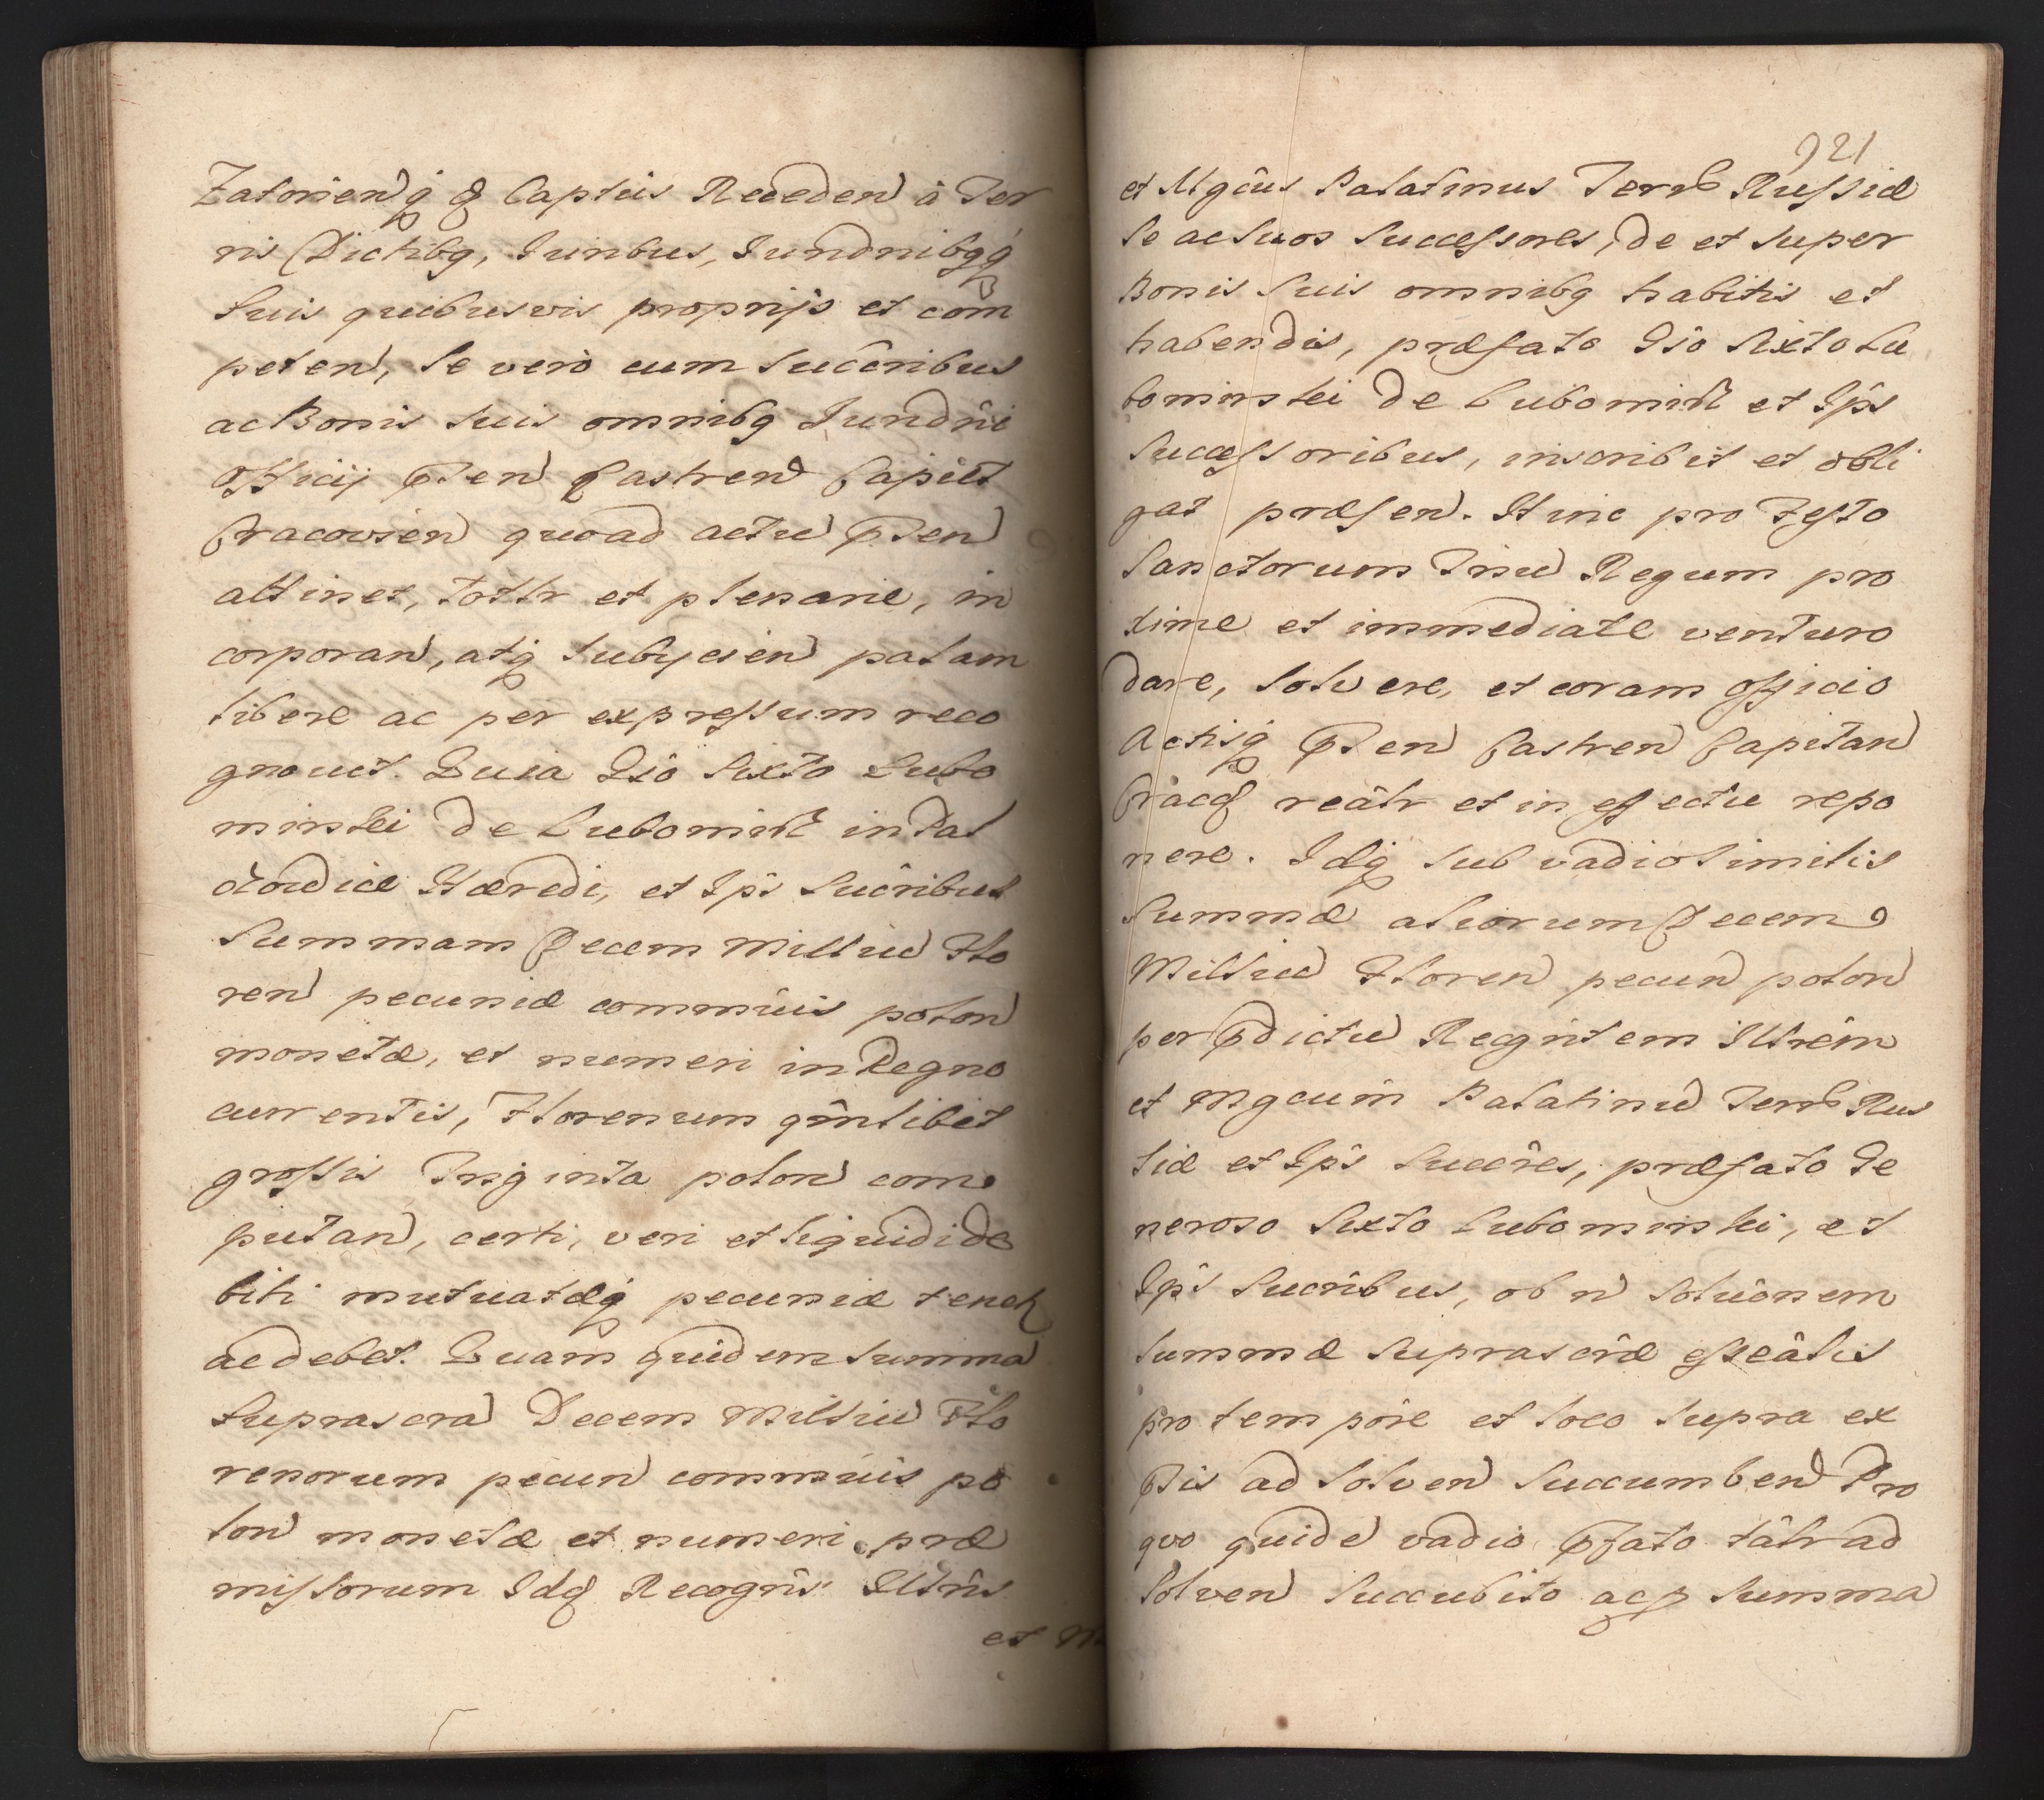 Zatorien q & Captuis Receden à Ter
ris Dictibq, Juribus, Jundnibqq
Suis quibusvis proprijs et com
peten, Se vero cum Succribus
ac Bonis Suis omnibq Jundni
Officij pten Castren Capilt
Cracovien quoad actu pten
attinet, tottr et plenarie, in
corporan, atq Subycien palam
libere ac per expressum reco
gnouit. Quia Gso Sixto Lubo
mirski de Lubomirz in Pal
Hæredi, et Ips Sucribus
Summam Decem Milliu Flo
ren pecuniæ commuis polon
monetæ, et numeri in Regno
currentis, Florenum qmlibet
grossis Triginta polon com
putan, certi, veri et liquidi de
biti mutuatæq pecuniæ tenet
ac debet. Quam quidem Summa
Suprascra Decem Milliu Flo
renorum pecun commuis po
lon monetæ et numeri præ
missorum Idq Recogns Illris
et M
921
et Mgcus Palatinus Terr Russiæ
Se ac Suos Successores, de et Super
Bonis Suis omnibq habitis et
habendis, præfato Gso Sixto Lu
bomirski de Lubomirz et Ips
Successoribus, inscribit et obli
gat præsen. Hinc pro Festo
Sanctorum Triu Regum pro
xime et immediate venturo
dare, Solvere, et coram officio
Actisq pten Castren Capitan
Cracq reâlr et in effectu repo
nere. Idq Sub vadio Similis
Summæ aliorum Decem
Milliu Floren pecun polon
per pdictu Recgntem Illrem
et Mgcum Palatinu Terr Rus
siæ et Ips Succres, præfato Ge
neroso Sixto Lubomirski, et
Ips Sucribus, ob n Soluônem
Summæ Suprascræ effeâlis
pro tempore et loco Supra ex
ptis ad Solven Succumben Pro
quo quide vadio pfato tâlr ad
Solven Succubito acp Summa